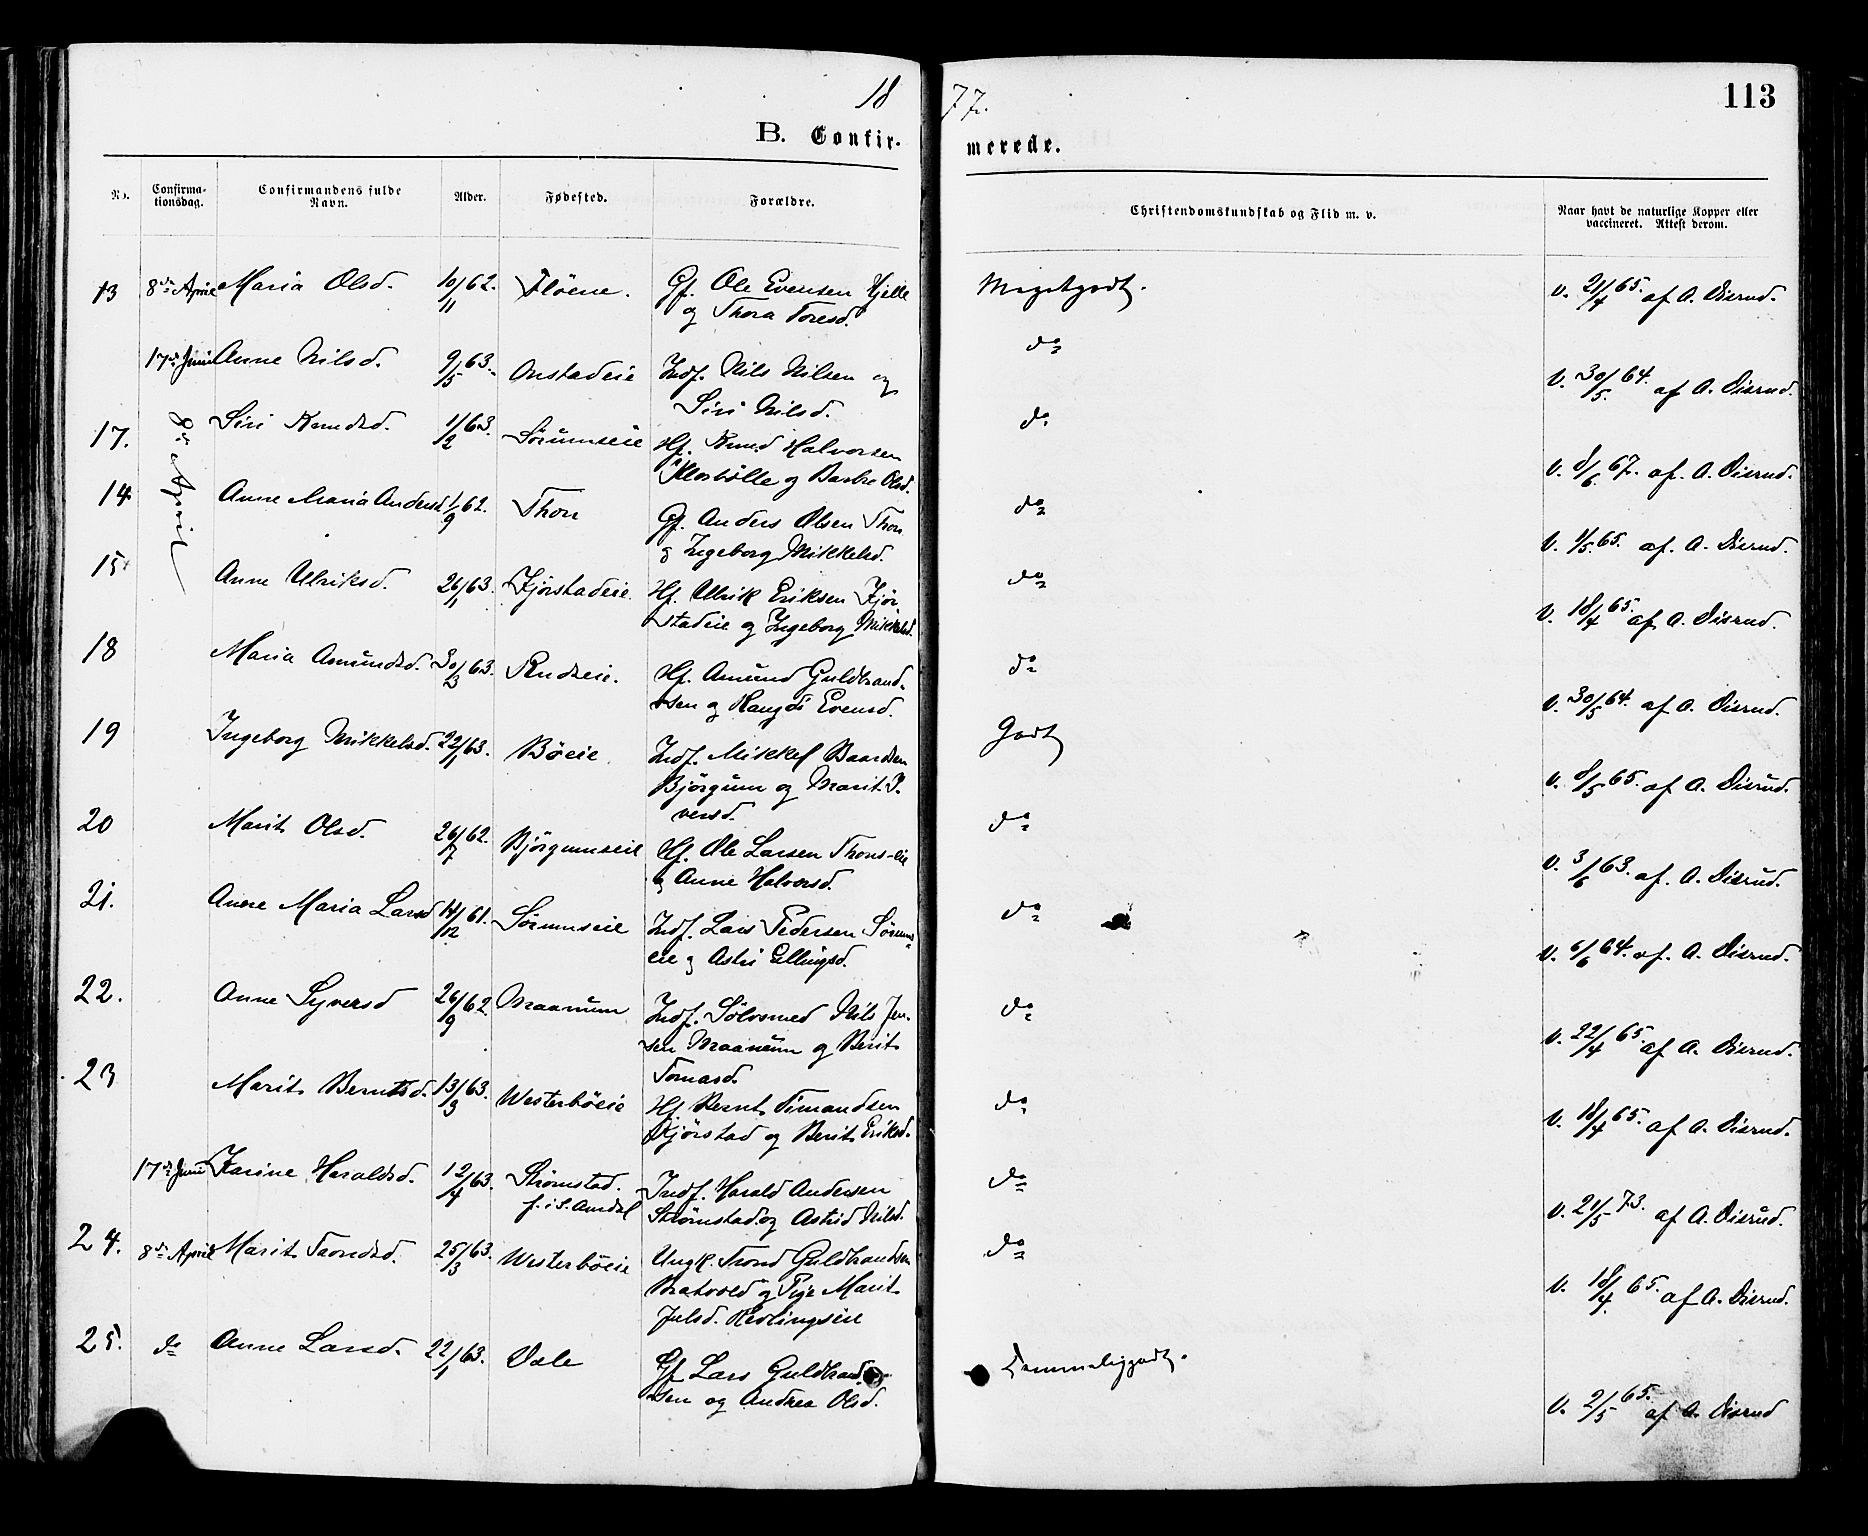 18
77.
113
B. Confir-
merede.
No.
Confirma-
tionsdag.
Confirmandens fulde
Navn.
Alder.
Fødested.
Forældre.
Christendomskundskab og Flid m. v.
Naar havt de naturlige Kopper eller
vaccineret. Attest derom.
13 8de April Maria Olsd. 10/11 62. Fløene. Gf. Ole Evensen Hjelle
og Thora Toresd.
Megetgodt. v. 21/4 65. af A. Disrud.
17de Juni Anne Nilsd. 9/5 63. Onstadeie Indf. Nils Nilsen og
Siri Nilsd.
do v. 30/5. 64. af A. Disrud.
17. 8de April Siri Knudsd. 1/2 63. Sørumseie Hf. Knud Halvorsen
Klosbølle og Barbro Olsd.
do v. 8/6. 67. af. A. Disrud.
14 Anne Maria Andersd 1/9 62. Thon Gf. Anders Olsen Thon
og Ingeborg Mikkelsd.
do v. 1/5. 65. af. A. Disrud.
15. Anne Ulriksd. 26/1 63. Kjørstadeie. Hf. Ulrik Eriksen Kjør
stadeie og Ingeborg Mikkelsd.
do v. 18/4 65. af A. Disrud.
18 Maria Amundsd. 30/3 63. Hf. Amund Guldbrand-
sen og Rangdi Evensd.
do v. 30/5 64. af A. Disrud.
19 Ingeborg Mikkelsd. 22/1 63. Bøeie. Indf. Mikkel Baardsen
Bjørgum og Marit I-
versd.
Godt v. 8/5 65. af A. Disrud.
20 Marit Olsd. 26/7 62. Bjørgumseie Hf. Ole Larsen Thons-eie
og Anne Halvorsd.
do v. 3/6 63. af. A. Disrud.
21. Anne Maria Larsd 14/12 61. Sørumseie Indf. Lars Pedersen Sørums-
eie og Astri Ellingsd.
do v. 6/6 64. af. A. Disrud.
22. Anne Syversd 26/9 62 Maanum Indf. Sølvsmed Nils Jen-
sen Maanum og Berit
Tomasd.
do v. 22/4 65. af A. Disrud.
23 Marit Berntsd. 13/3 63. Westerbøeie Hf. Bernt Simandsen
Kjørstad og Berit Eriksd.
do v. 18/4 65. af A. Disrud.
17de Juni Karine Haraldsd. 12/4 63. Strømstad. Indf. Harald Andersen
f. i S. Aurdal Strømstad og Astrid Nilsd.
do v. 21/5 73. af A. Disrud.
24. 8de April Marit Trondsd. 25/3 63. Westerbøeie Ungk. Trond Guldbrandsen
Bratvold og Pige Marit
Julsd.
do v. 18/4. 65. af A. Disrud.
25. do Anne Larsd. 22/1 63. Vale Gf Lars Guldbrand-
sen og Andrea Olsd.
Temmeliggodt. v. 2/5 65. af A. Disrud